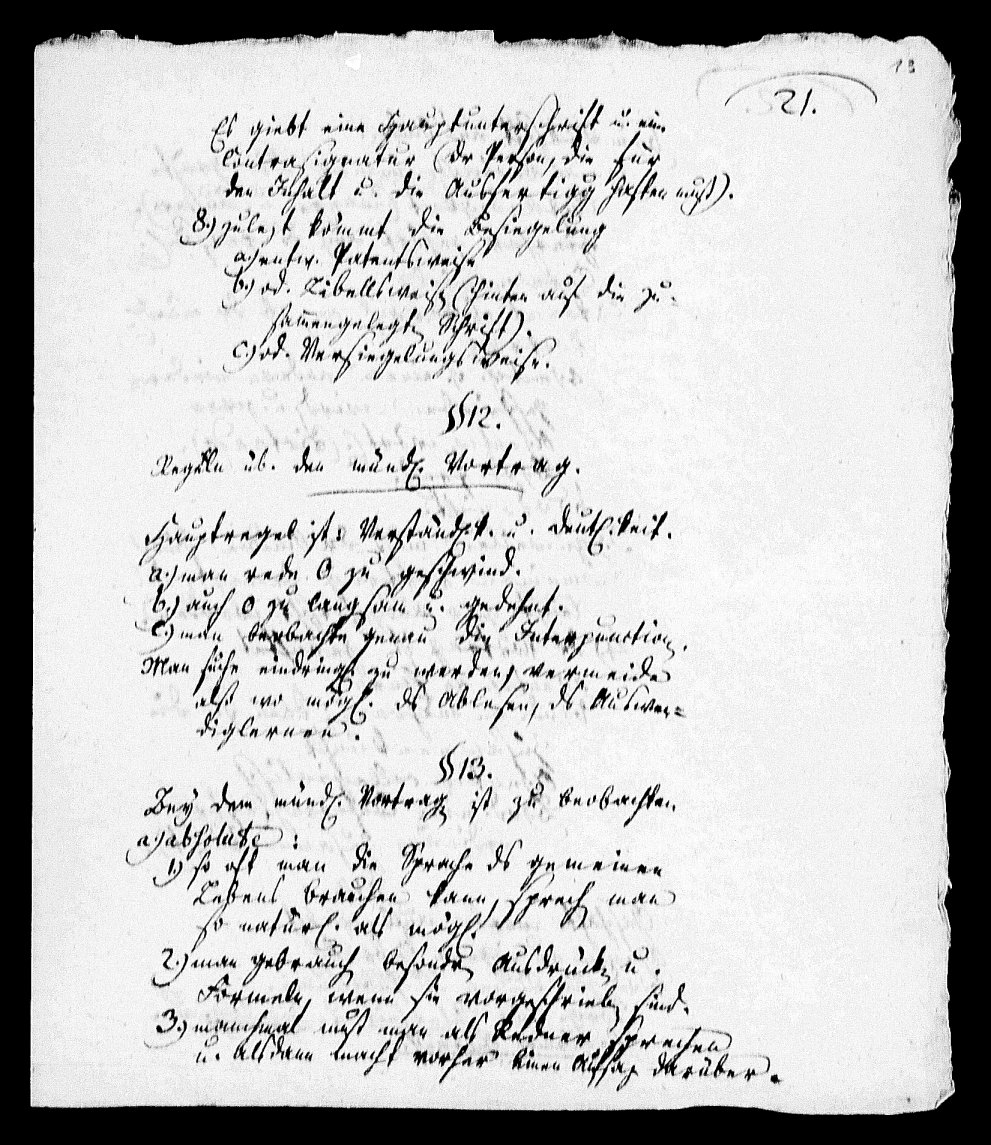 13
21.
Es giebt eine Hauptunterschrift u. eine
Contrasignatur (dr Person, die für
den Inhalt u. die Ausfertigg haften muß).
8.) zulezt kömmt die Besiegelung
a.) entw. Patentsweise
b.) od. Libellsweise (hinten auf die zu-
sammengelegte Schrift).
c.) od. Versiegelungsweise.
§12.
Regeln üb. den mündl. Vortrag.
Hauptregel ist: Verständlk. u. Deutl.keit.
a.) man rede 0 zu geschwind.
b.) auch 0 zu langsam u. gedehnt.
c.) man beobachte genau die Interpunction.
Man suche eindringl. zu werden, vermeide
also wo mögl. ds Ablesen, ds Auswen=
diglernen.
§13.
Bey dem mündl. Vortrag ist zu beobachten
a.) absolute:
1.) so oft man die Sprache ds gemeinen
Lebens brauchen kann, spreche man
so natürl. als mögl.
2.) man gebrauche besondre Ausdrücke u.
Formeln, wenn sie vorgeschrieben sind.
3.) manchmal muß man als Redner sprechen
u. alsdann macht vorher einen Aufsaz darüber.